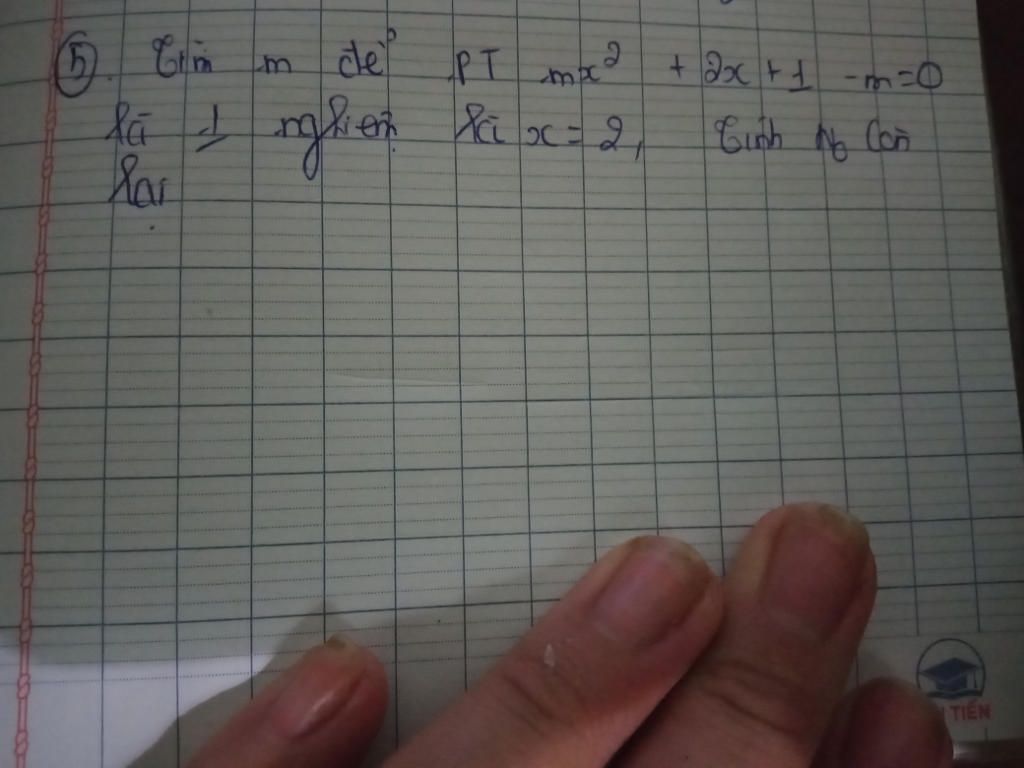 ⑤. Tìm m để PT mx² + 2x + 1 - m = 0
là 1 nghiệm là x = 2, tính No còn
lại
TIẾN